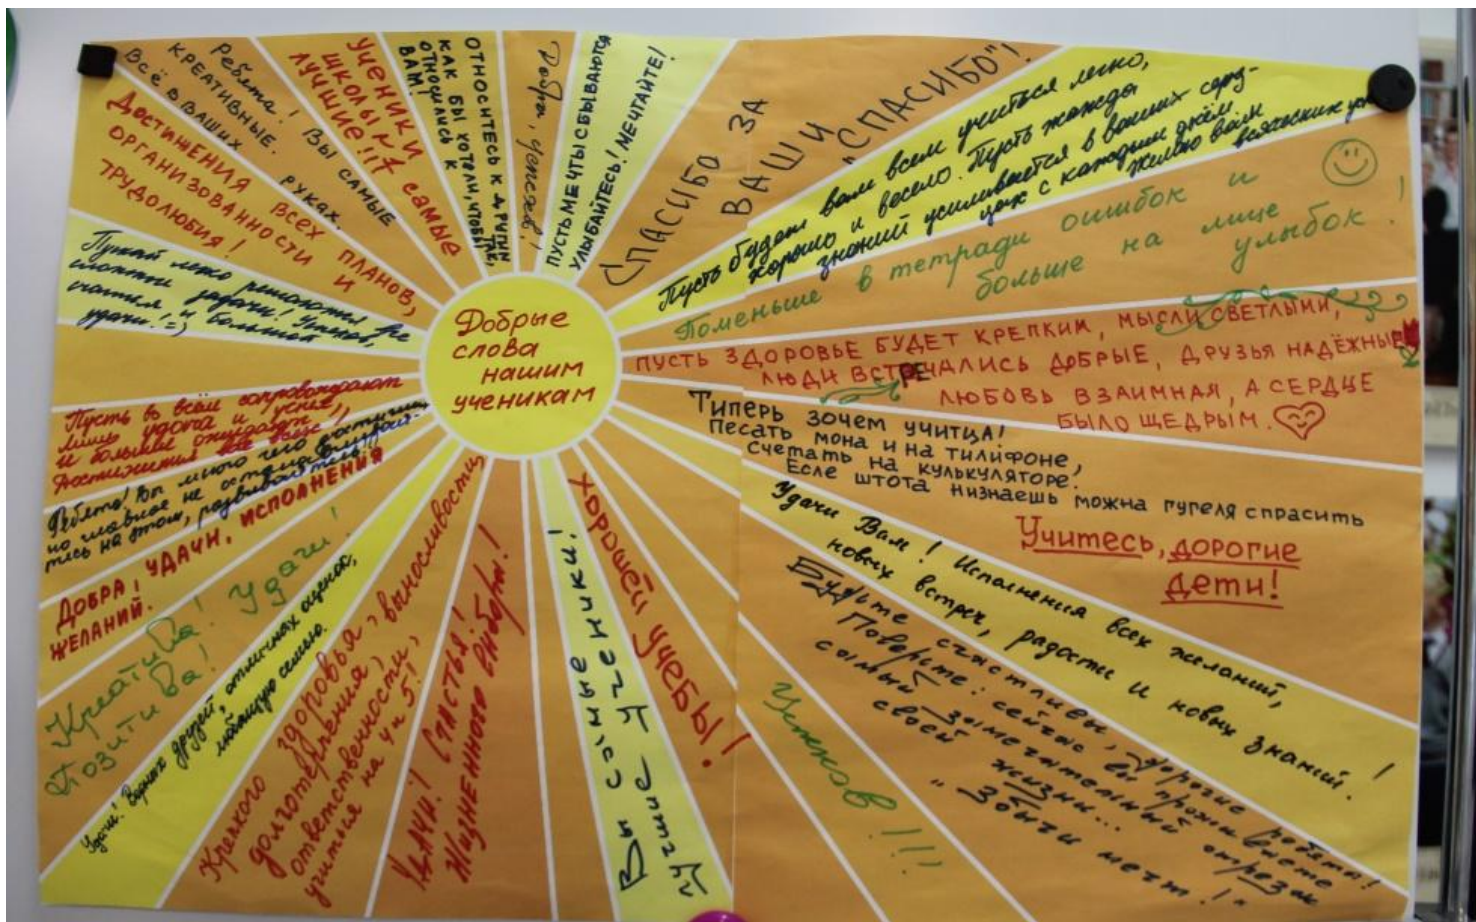 Добрые
слова
нашим
ученикам
Ребята! Вы самые
КРЕАТИВНЫЕ.
Всё в ваших
руках.
Ученики
школы №17 самые
лучшие!!!
ОТНОСИТЕСЬ К ДРУГИМ
КАК БЫ ХОТЕЛИ, ЧТОБЫ
ОТНОСИЛИСЬ К
ВАМ!
Добра, успехов!
ПУСТЬ МЕЧТЫ СБЫВАЮТСЯ
УЛЫБАЙТЕСЬ! МЕЧТАЙТЕ!
СПАСИБО ЗА
ВАШИ
„СПАСИБО"!
Пусть будет вам всем учиться легко,
хорошо и весело. Пусть жажда
знаний усиливается в ваших серд-
цах с каждым днём.
Желаю вам всяческих
Поменьше в тетради ошибок и
больше на лице
улыбок!
ПУСТЬ ЗДОРОВЬЕ БУДЕТ КРЕПКИМ, МЫСЛИ СВЕТЛЫМИ,
ЛЮДИ ВСТРЕЧАЛИСЬ ДОБРЫЕ, ДРУЗЬЯ НАДЁЖНЫЕ
ЛЮБОВЬ ВЗАИМНАЯ, А СЕРДЦЕ
БЫЛО ЩЕДРЫМ.
Типерь зочем учитца!
Песать мона и на тилифоне,
Счетать на кулькуляторе.
Есле штота низнаешь можна гугеля спрасить
Учитесь, дорогие
дети!
Удачи Вам! Исполнения всех желаний,
новых встреч, радости и новых знаний!
Будьте счастливы, дорогие ребята!
Поверьте: сейчас вы проживаете
самый замечательный отрезок
своей жизни...
Успехов!!!
ХОРОШЕЙ УЧЕБЫ!
Вы самые
лучшие ученики!
УДАЧИ! СЧАСТЬЯ!
Жизненного выбора!
Крепкого здоровья, выносливости,
долготерпения,
ответственности,
учиться на 4 и 5!
Удачи! Верных друзей, отличных оценок,
любящую семью.
Креатива! Удачи!
Позитива!
ДОБРА, УДАЧИ, ИСПОЛНЕНИЯ
ЖЕЛАНИЙ.
Ребята! Вы много чего достигли
но главное не останавливай-
тесь на этом, развивайтесь!
Пусть во всём сопровождают
лишь удача и успех,
и большие ожидают
достижения
Пускай легко решаются все
задачи! Успехов,
счастья и большой
удачи! =)
Достижения всех планов,
организованности и
трудолюбия!